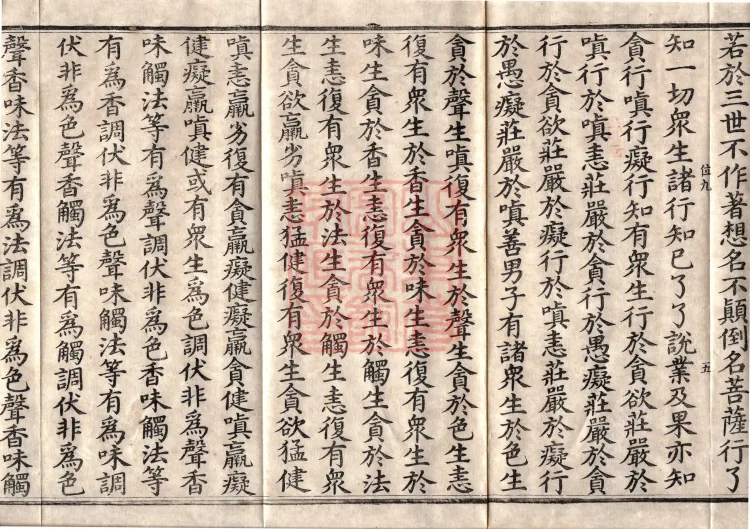 若於三世不作著想名不顛倒名菩薩行了
位九
五
知一切衆生諸行知已了了說業及果亦知
貪行嗔行癡行知有衆生行於貪欲莊嚴於
嗔行於嗔恚莊嚴於貪行於愚癡莊嚴於貪
行於貪欲莊嚴於癡行於嗔恚莊嚴於癡行
於愚癡莊嚴於嗔善男子有諸衆生於色生
貪於聲生嗔復有衆生於聲生貪於色生恚
復有衆生於香生貪於味生恚復有衆生於
味生貪於香生恚復有衆生於觸生貪於法
生恚復有衆生於法生貪於觸生恚復有衆
生貪欲羸劣嗔恚猛健復有衆生貪欲猛健
嗔恚羸劣復有貪羸癡健癡羸貪健嗔羸癡
健癡羸嗔健或有衆生爲色調伏非爲聲香
味觸法等有爲聲調伏非爲色香味觸法等
有爲香調伏非爲色聲味觸法等有爲味調
伏非爲色聲香觸法等有爲觸調伏非爲色
聲香味法等有爲法調伏非爲色聲香味觸